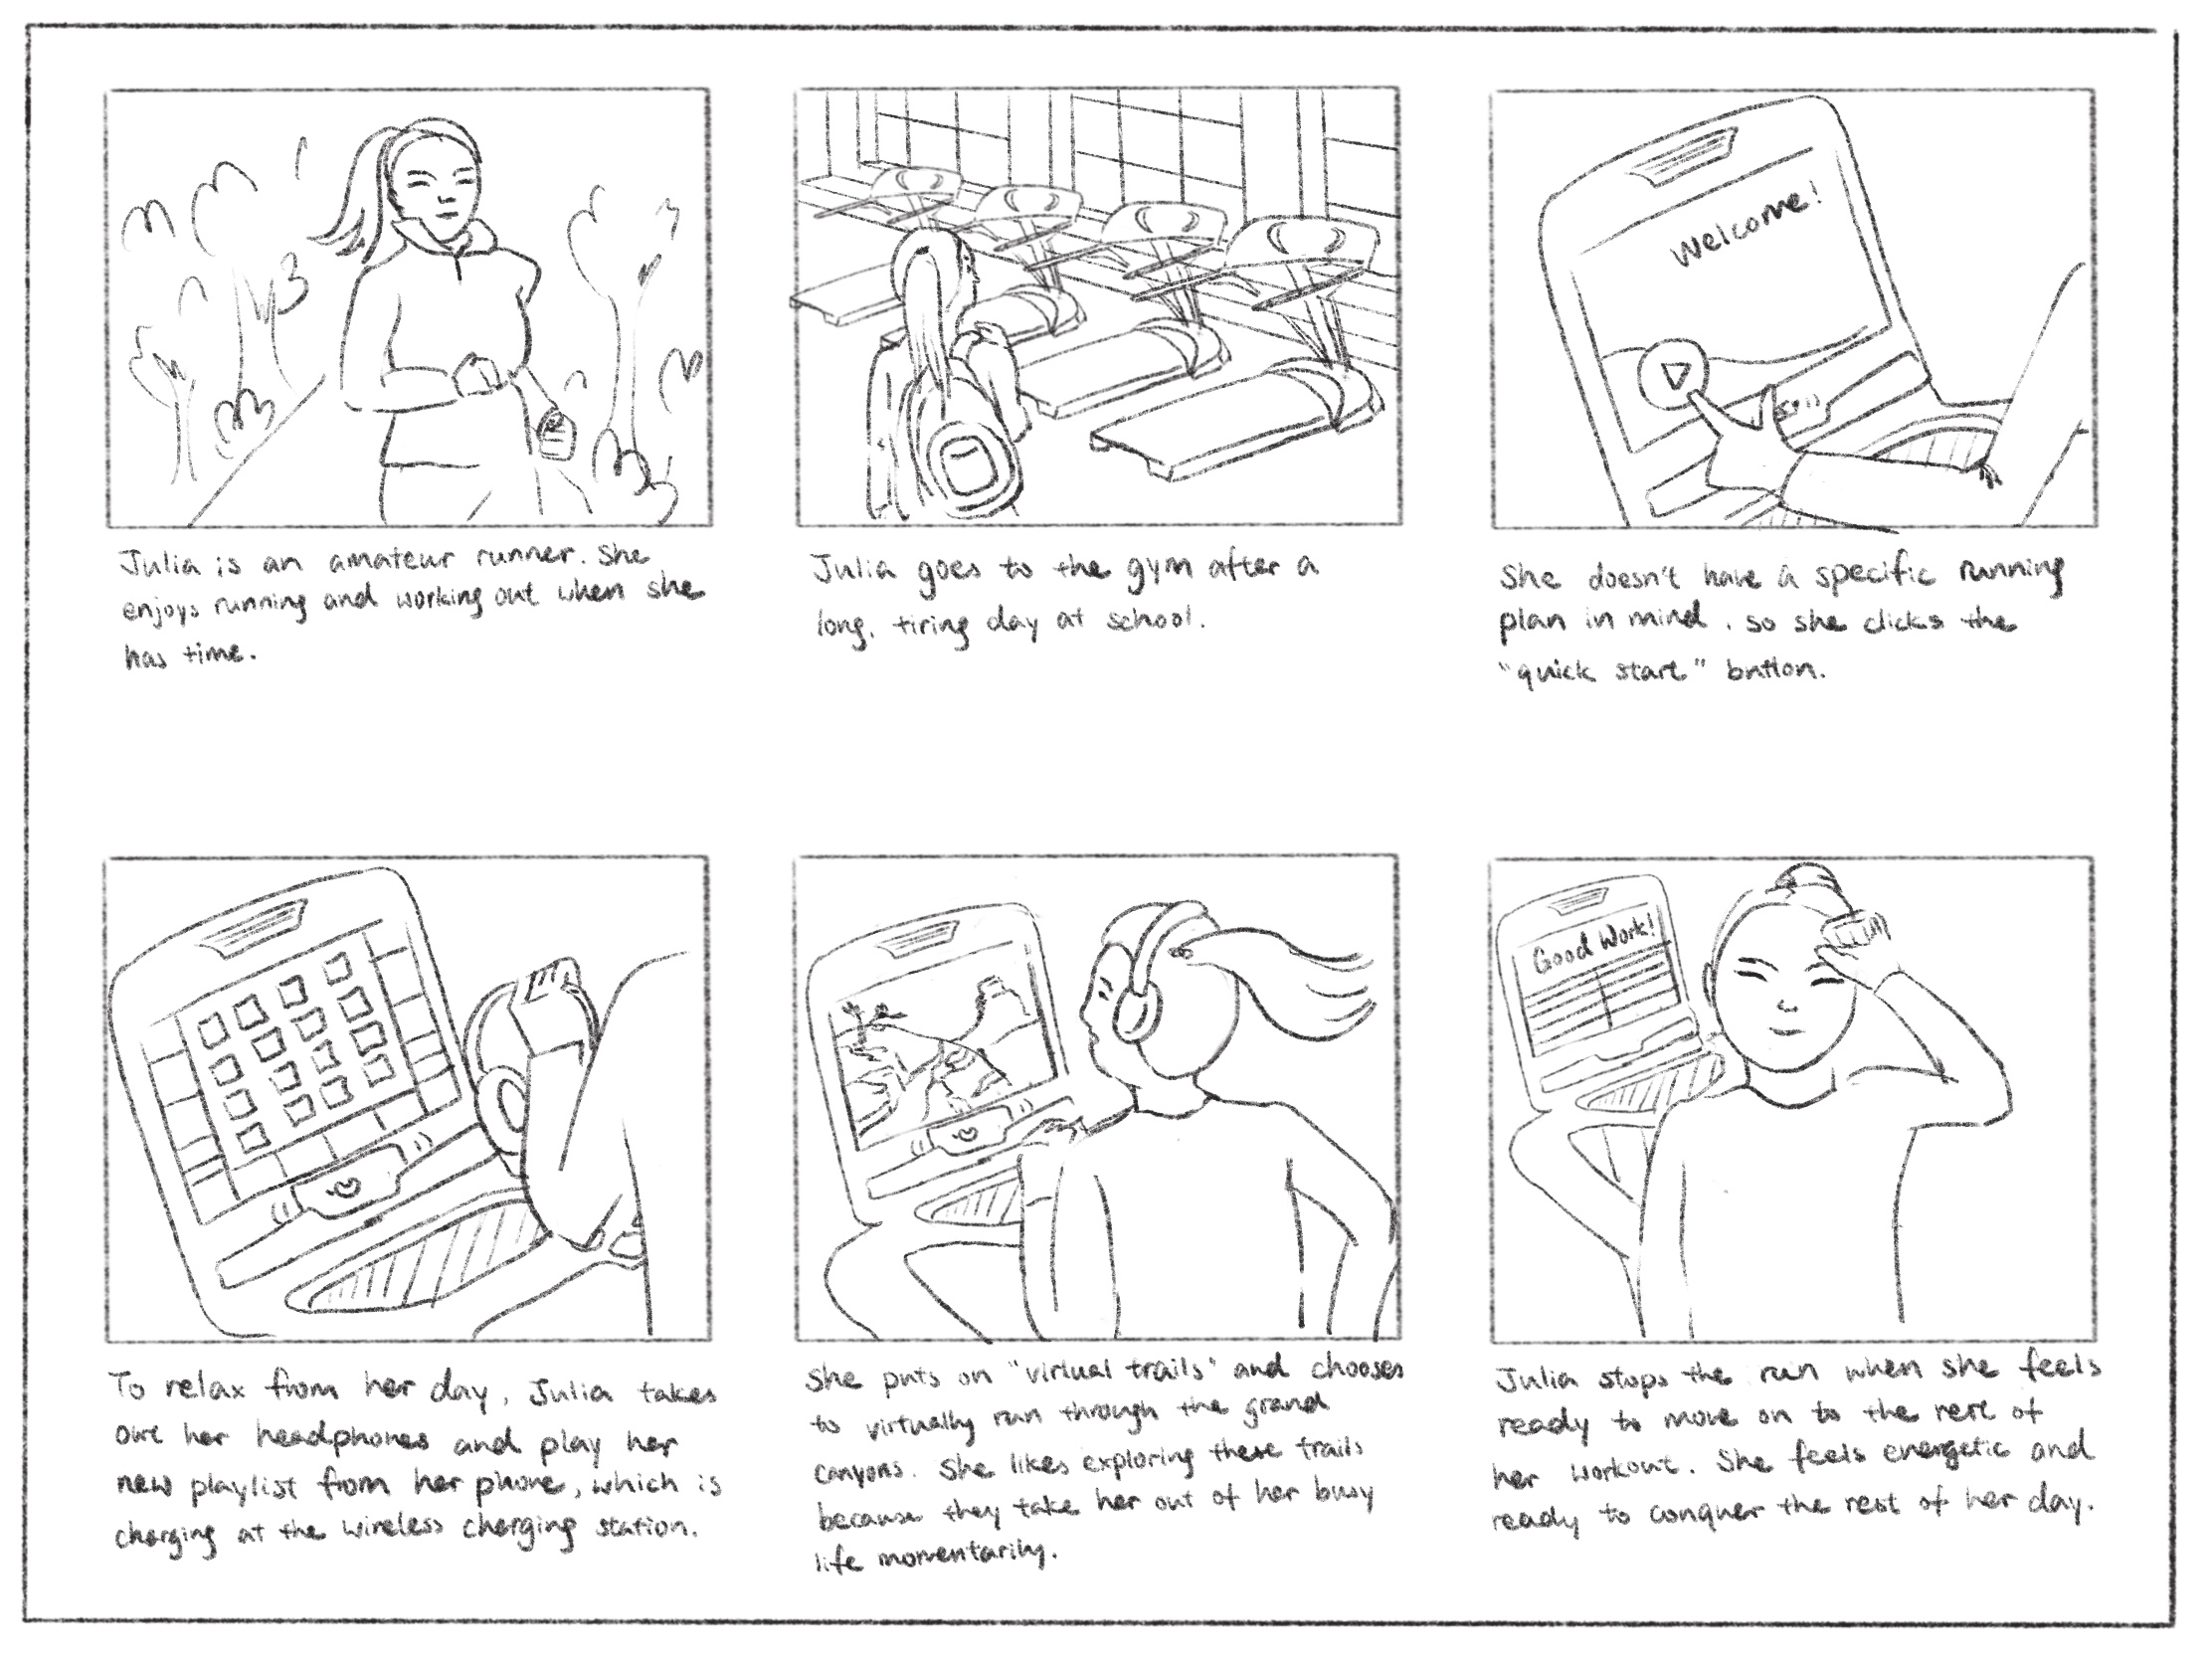 Julia is an amateur runner. She
enjoys running and working out when she
has time.
Julia goes to the gym after a
long, tiring day at school.
Welcome!
She doesn't have a specific running
plan in mind, so she clicks the
"quick start" button.
To relax from her day, Julia takes
out her headphones and play her
new playlist from her phone, which is
charging at the wireless charging station.
She puts on "virtual trails" and chooses
to virtually run through the grand
canyons. She likes exploring these trails
because they take her out of her busy
life momentarily.
Good Work!
Julia stops the run when she feels
ready to move on to the rest of
her workout. She feels energetic and
ready to conquer the rest of her day.